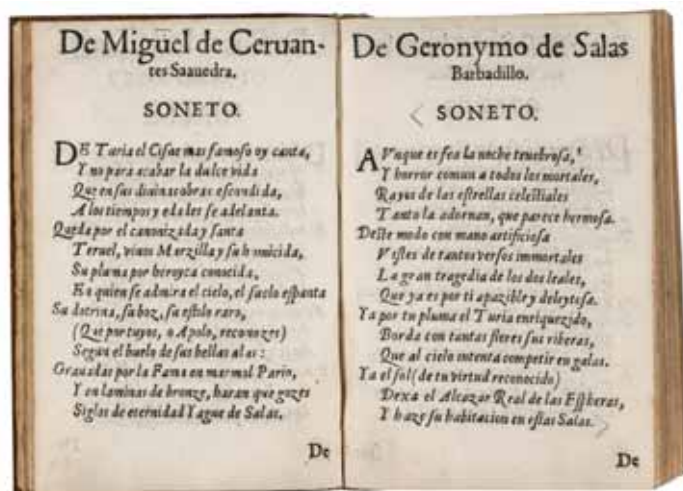 De Miguel de Ceruan-
tes Saauedra.
SONETO.
DE Turia el Cisne mas famoso oy canta,
Y no para acabar la dulce vida
Que en sus diuinas obras escondida,
A los tiempos y edades se adelanta.
Queda por el canonizada y santa
Teruel, viuos Marzilla y su homicida,
Su pluma por heroyca conocida,
En quien se admira el cielo, el suelo espanta
Su dotrina, su boz, su estilo raro,
(Que por tuyos, o Apolo, reconozes)
Segun el buelo de sus bellas alas:
Grauadas por la Fama en marmol Pario,
Y en laminas de bronze, haran que gozes
Siglos de eternidad Yague de Salas.
De
De Geronymo de Salas
Barbadillo.
SONETO.
AVnque es fea la noche tenebrosa,
Y horror comun a todos los mortales,
Rayos de las estrellas celestiales
Tanto la adornan, que parece hermosa.
Deste modo con mano artificiosa
Vistes de tantos versos immortales
La gran tragedia de los dos leales,
Que ya es por ti apazible y deleytosa.
Ya por tu pluma el Turia enriquezido,
Borda con tantas flores sus riberas,
Que al cielo intenta competir en galas.
Ya el sol (de tu virtud reconocido)
Dexa el Alcazar Real de las Espheras,
Y haze su habitacion en estas Salas.
De